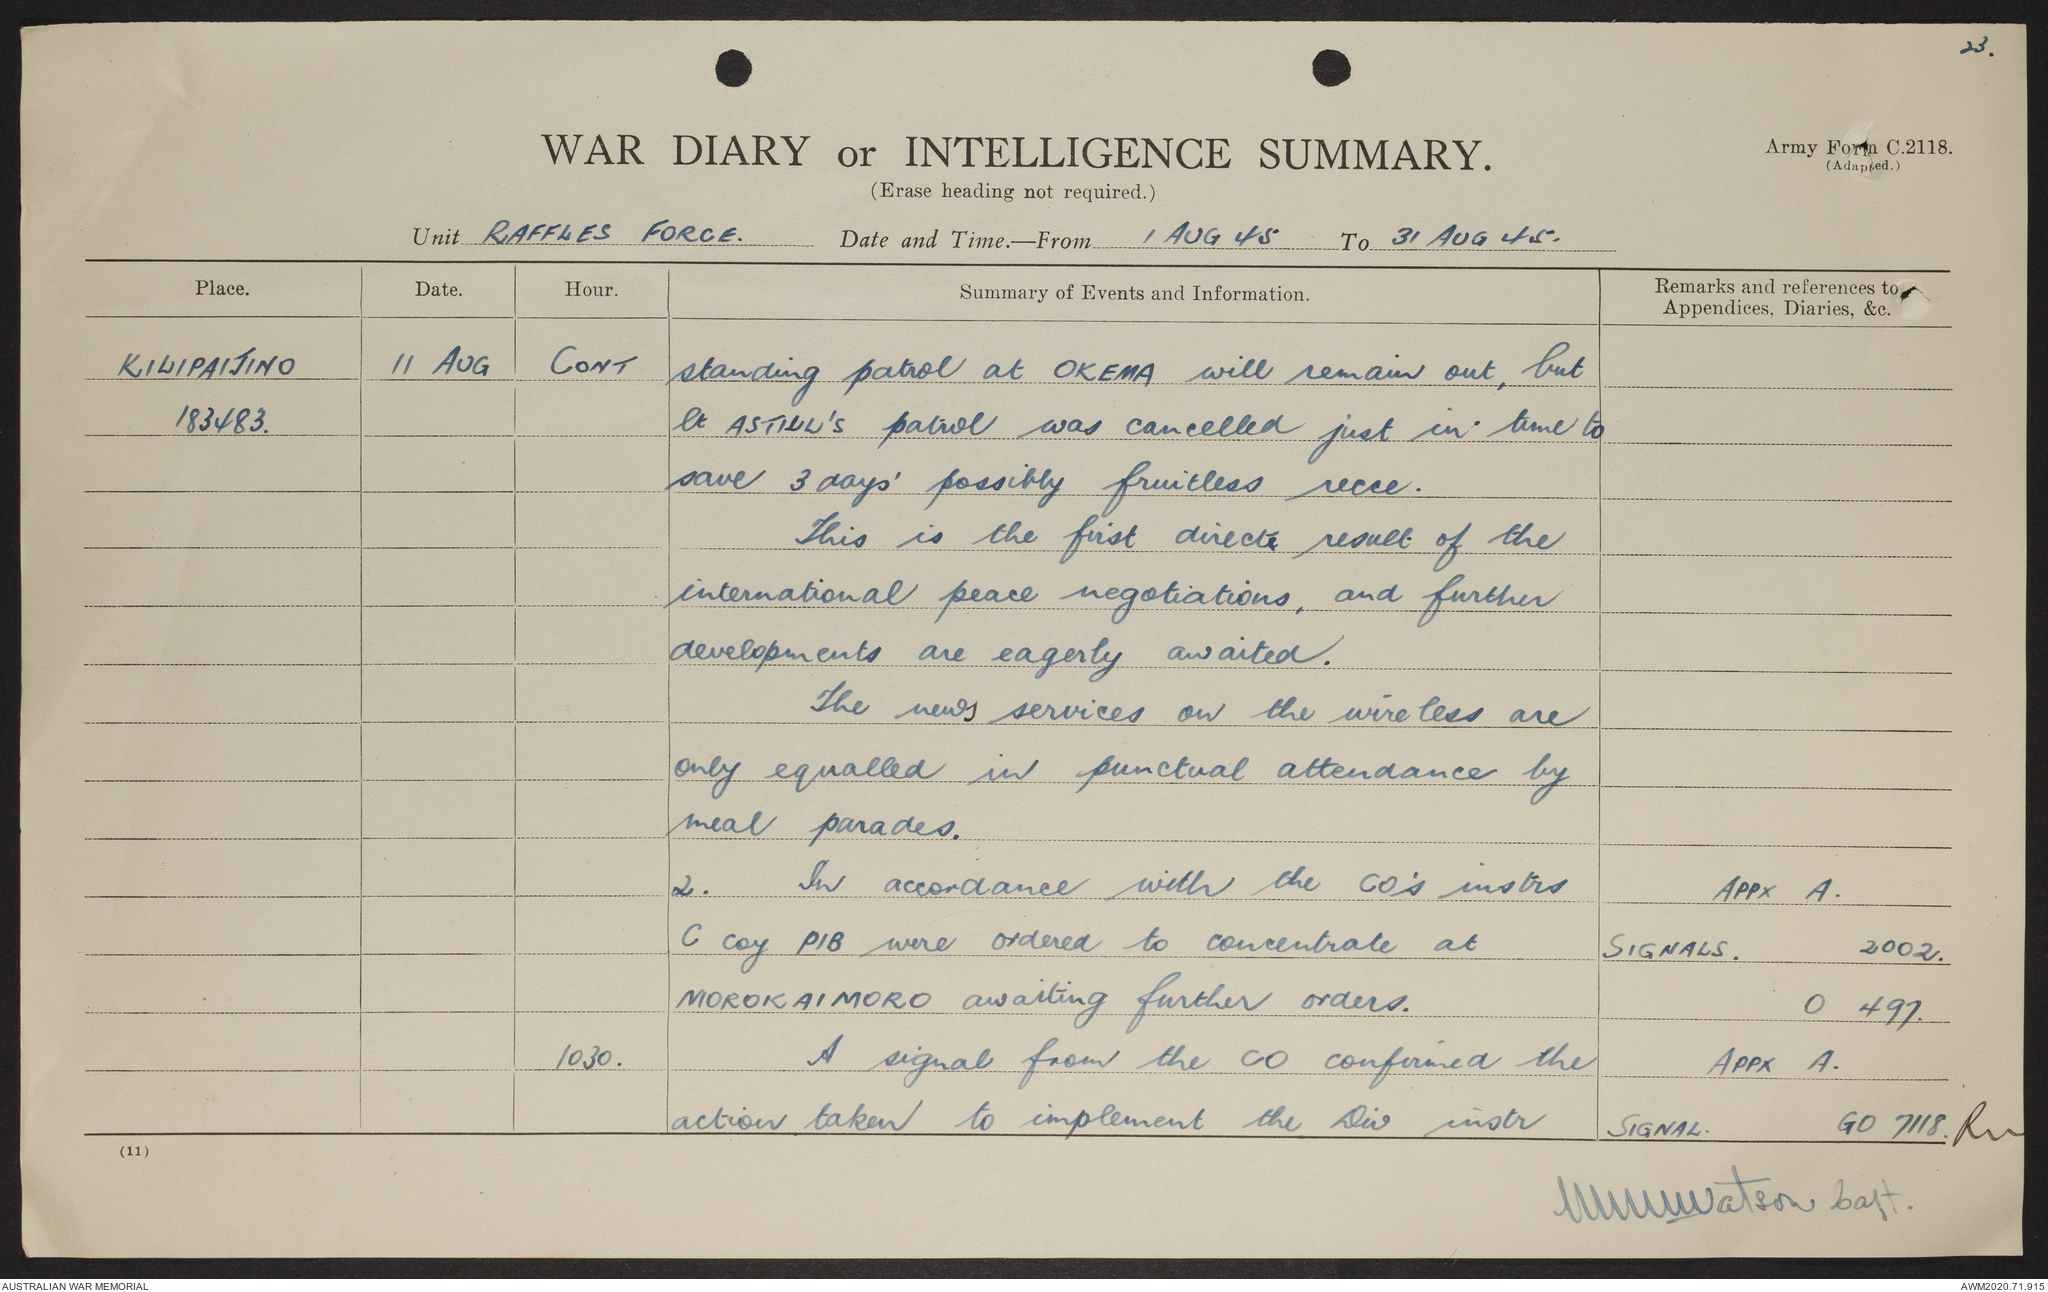 23.
WAR DIARY or INTELLIGENCE SUMMARY.
Army Form C.2118.
(Adapted.)
(Erase heading not required.)
Unit RAFFLES FORCE. Date and Time.—From 1 AUG 45 To 31 AUG 45.
Place. Date. Hour. Summary of Events and Information. Remarks and references to Appendices, Diaries, &c.
KILIPAIJINO 11 AUG CONT standing patrol at OKEMA will remain out, but
183483. Lt ASTILL'S patrol was cancelled just in time to
save 3 days' possibly fruitless recce.
This is the first direct result of the
international peace negotiations, and further
developments are eagerly awaited.
The news services on the wireless are
only equalled in punctual attendance by
meal parades.
2. In accordance with the CO's instrs APPX A.
C coy PIB were ordered to concentrate at SIGNALS. 2002.
MOROKAIMORO awaiting further orders. O 497.
1030. A signal from the CO confirmed the APPX A.
action taken to implement the Div instr SIGNAL. GO 7118.
(11)
Watson Capt.
AUSTRALIAN WAR MEMORIAL AWM2020.71.915